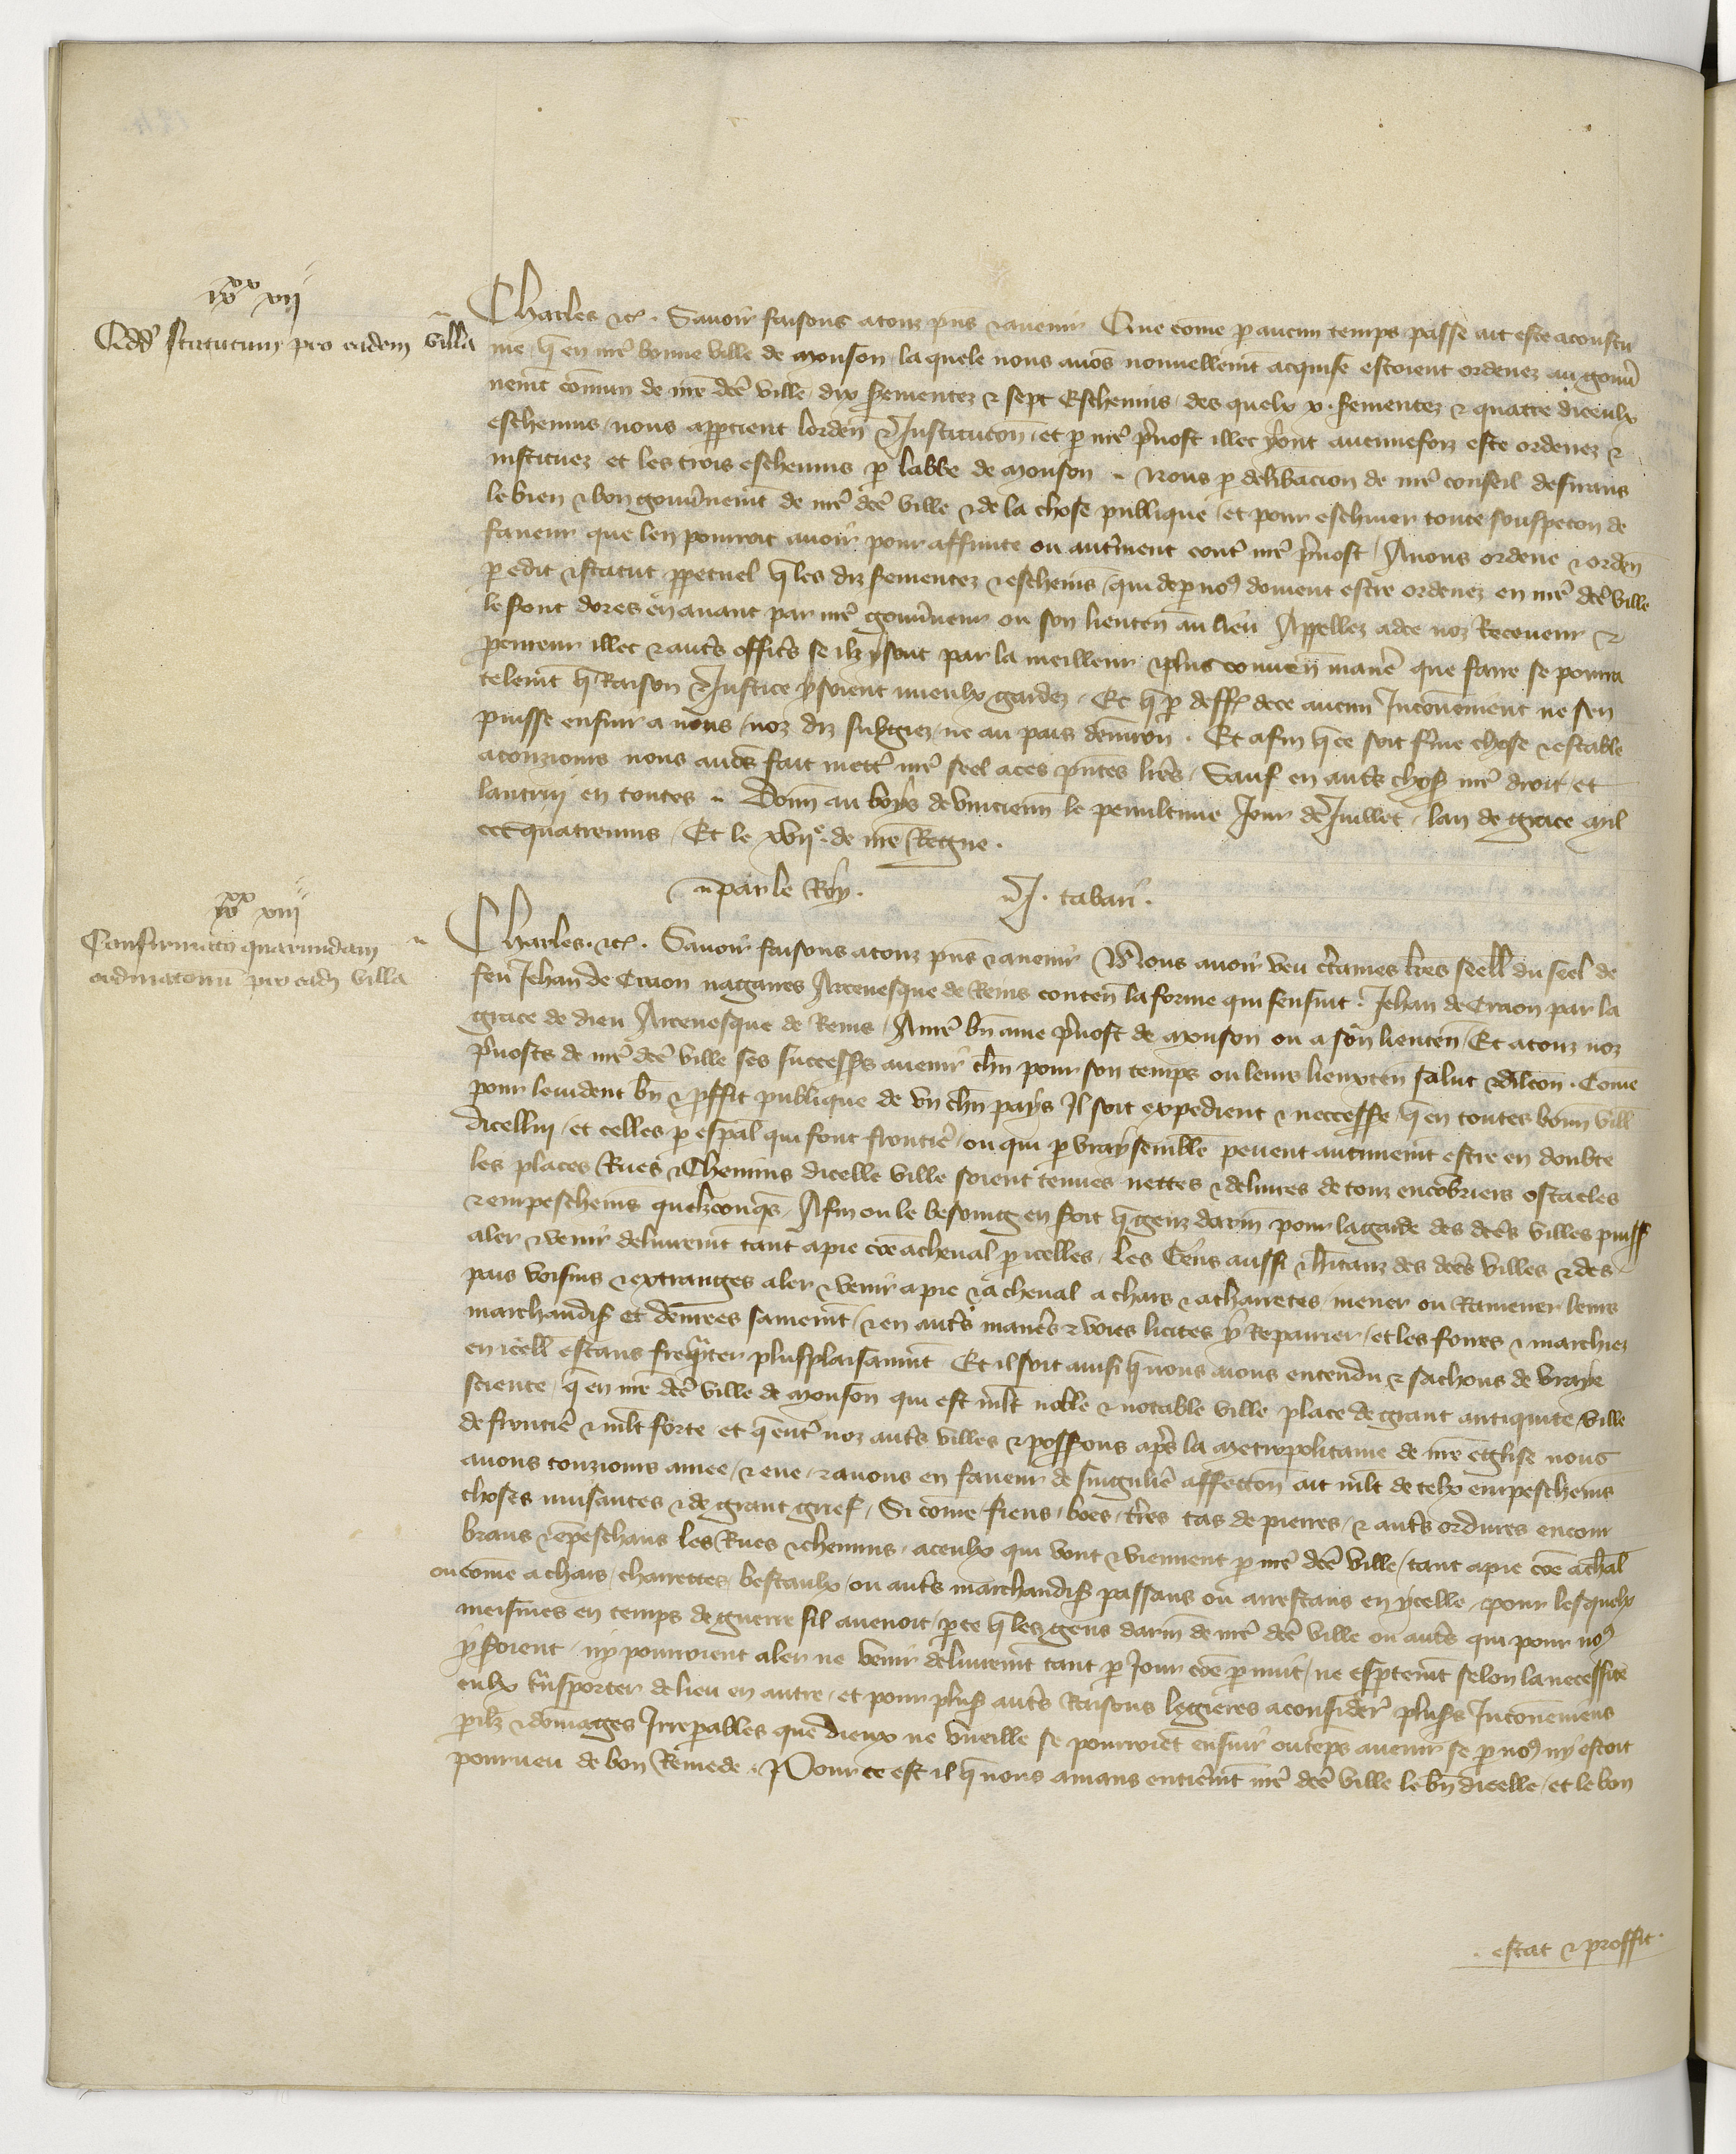 ixxx xvii
Add statutum pro eadem villa
Charles etc. Savoir faisons a touz pns & avenir Que come p aucun temps passe ait este acoustu
me q en nre bonne ville de Mouson la quele nous avos nouvellemt acquise estoient ordenez au gouv
nemt comun de nre dce ville dix sementez & sept Eschevins des quelx x. sementez & quatre diceulx
eschevins nous appartient lorden & Institucon et p nre pvost illec y ont aucunefoiz este ordenez &
instituez et les trois eschevins p labbe de Mouson Nous p delibacion de nre conseil desirans
le bien & bon gouvnemt de nre dce ville & de la chose publique et pour eschiver toute souspecon de
faveur que len pourroit avoir pour affinite ou autment cont nre pvost Avons ordene & orden
p edit & statut ppetuel q les diz sementez & eschevis qui de p nos doivent estre ordenez en nre dce ville
le sont dores en avant par nre gouvneur ou son lieuten au lieu Appellez ad ce noz Receveur &
pcureur illec & auts officrs se ilz y sont par la meilleur & plus conven maner que faire se pourra
telemt q Raison & Justice y soient mieulx gardez Et q p deff de ce aucun Inconvenient ne sen
puisse ensuir a nous noz diz subgiez ne au pais denviron. Et afin q ce soit ferme chose & estable
a touzjours nous avos fait mettr nre seel a ces pntes lres Sauf en auts choses nre droit et
lautruy en toutes Donn au boys de vincienn le penultime Jour de Juillet lan de grace mil
ccc quatrevins Et le xvii e de nre Regne.
par le Roy. J. tabari.
ixxx xviii
Confirmatio quarundam
ordinatonu pro ead villa
Charles etc. Savoir faisons a touz pns & avenir Nous avoir veu ctaines lres seell du seel de
feu Jehan de Craon nagaires Arcevesque de Reins conten la forme qui sensuit. Jehan de Craon par la
grace de dieu Arcevesque de Reins A nre bn ame pvost de Mouson ou a son lieuten Et a touz noz
pvosts de nre dce ville ses successrs avenir chn pour son temps ou leurs lieuxten salut & dilcon. Come
pour levident bn & pffit publique de un chn pays Il soit expedient & neccesse q en toutes bonn vill
dicelluy et celles p espal qui sont frontier ou qui p vraysemble pevent autrement estre en doubte
les places Rues & Chemins dicelle ville soient tenues nettes & delivres de touz encobriers ostacles
& empeschems quelzconqs Afin ou le besoing en soit q genz darm pour la garde des dces villes puiss
aler & venir delivremt tant a pie coe a cheval p icelles les Gens aussi & hitanz des dces villes & des
pais voisins & extranges aler & venir a pie & a cheval a chars & a charretes mener ou Ramener leurs
marchandis et denrees sauvemt & en auts maners & voies licites y Repairier et les foires & marchiez
en icell estans frequter plus plaisammt Et il soit ainsi q nous aions entendu & sachons de vraye
science q en nre dce ville de Mouson qui est mlt noble & notable ville place de grant antiquite ville
de frontier & mlt forte et q ent noz auts villes & possons apres la metropolitaine de nre eglise nous
avons touzjours amee & eue & avons en faveur de singulier affection ait mlt de telx empeschems
choses nuisantes & de grant grief Si come fiens boes tres tas de pierres & auts ordures encom
brans & epeschans les Rues & chemins a ceulx qui vont & viennent p nre dce ville tant a pie coe a chal
ou come a chars charrettes bestaulx ou auts marchandis passans ou arrestans en ycelle pour lesquelx
meismes en temps de guerre sil avenoit p ce q les gens darm de nre dce ville ou auts qui pour nos
y soient ny pourroient aler ne venir delivremt tant p Jour coe p nuit ne esptemt selon la necessite
eulx tnsporter de lieu en autre et pour plus auts Raisons legieres a considerr plusrs Inconveniens
pilz & domages Irreparables que dieux ne vueille se pourroiet ensuir ou teps avenir se p nos ny estoit
pourveu de bon Remede. Pour ce est il q nous amans entieremt nre dce ville le bn dicelle et le bon
. estat & proffit.